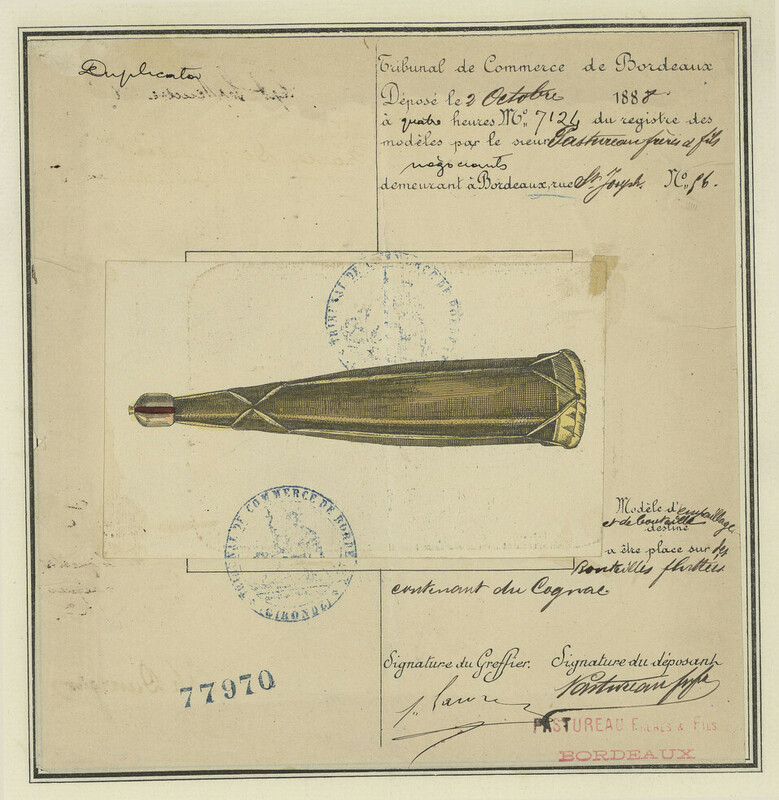 Duplicata
Tribunal de Commerce de Bordeaux
Déposé le 2 Octobre 1888
à quatre heures M. No 7124 du registre des
modèles par le sieur Pastureau frères & fils
négociants
demeurant à Bordeaux, rue St. Joseph. No 56.
TRIBUNAL DE COMMERCE DE BORDEAUX
Modèle d'empaillage
et de bouteille
destiné
a être place sur des
Bouteilles
contenant du Cognac
TRIBUNAL DE COMMERCE DE BORDE
(GIRONDE)
Signature du Greffier. Signature du déposant
Pastureau
77970
PASTUREAU FRERES & FILS
BORDEAUX